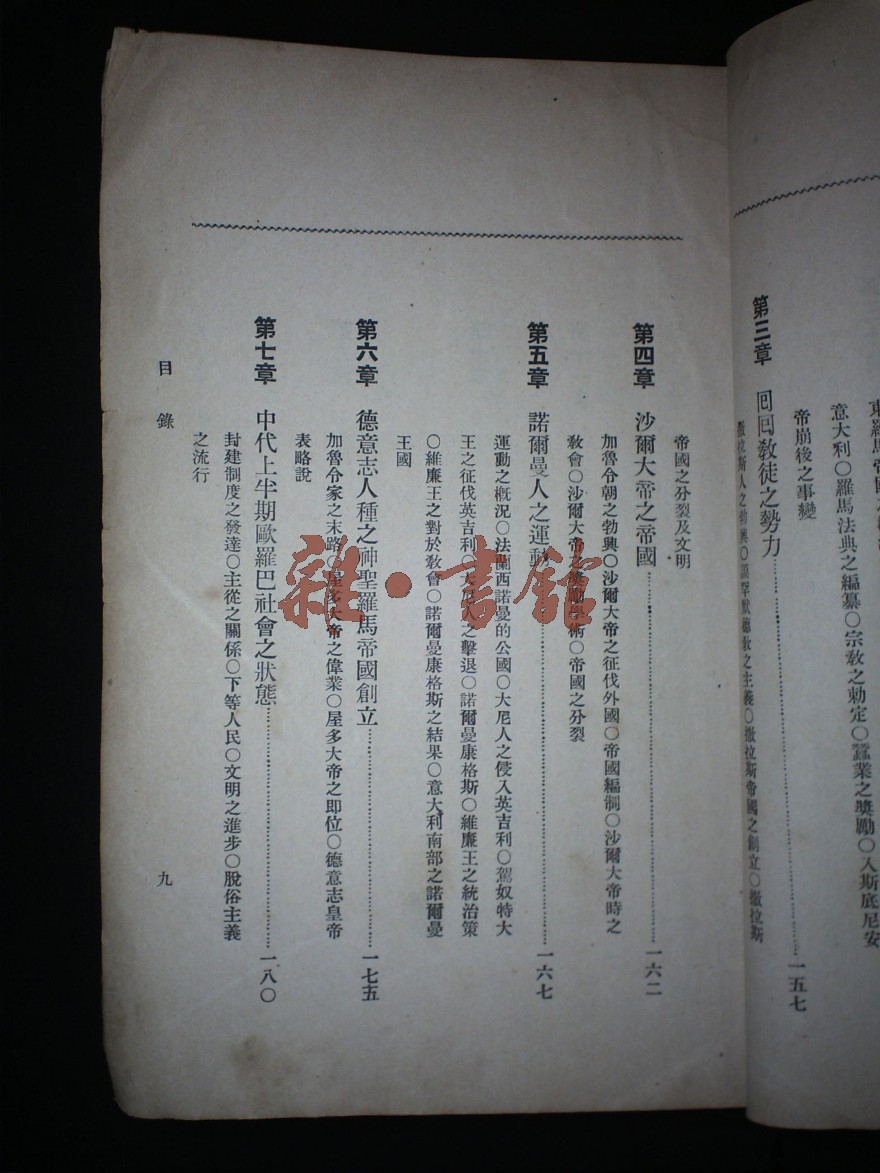 意大利〇羅馬法典之編纂〇宗教之勅定〇蠶業之獎勵〇入斯底尼安
帝崩後之事變
第三章 回回教徒之勢力 一五七
撒拉斯人之勃興〇謨罕默德教之主義〇撒拉斯帝國之創立〇撒拉斯
帝國之分裂及文明
第四章 沙爾大帝之帝國 一六二
加魯令朝之勃興〇沙爾大帝之征伐外國〇帝國編制〇沙爾大帝時之
敎會〇沙爾大帝之獎勵學術〇帝國之分裂
第五章 諾爾曼人之運動 一六七
運動之概況〇法蘭西諾曼的公國〇大尼人之侵入英吉利〇駕奴特大
王之征伐英吉利〇大尼人之擊退〇諾爾曼康格斯〇維廉王之統治策
〇維廉王之對於敎會〇諾爾曼康格斯之結果〇意大利南部之諾爾曼
王國
第六章 德意志人種之神聖羅馬帝國創立 一七五
加魯令家之末路〇屋多大帝之偉業〇屋多大帝之即位〇德意志皇帝
表略說
第七章 中代上半期歐羅巴社會之狀態 一八〇
封建制度之發達〇主從之關係〇下等人民〇文明之進步〇脫俗主義
之流行
目錄 九
雜·書館